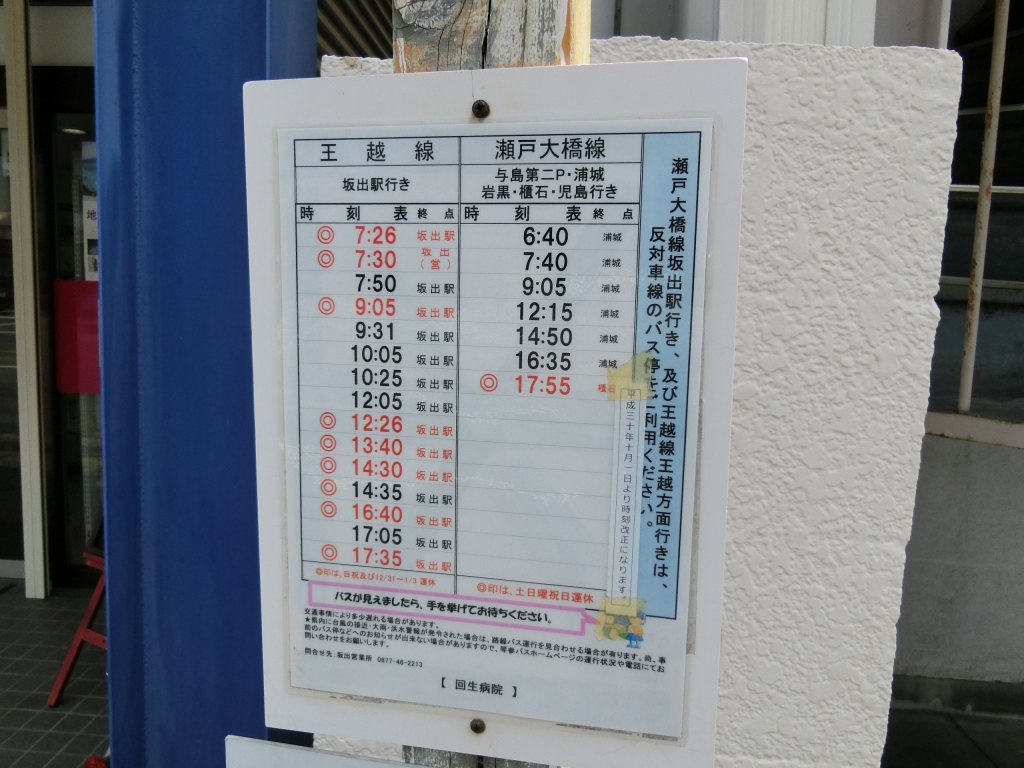 王越線
坂出駅行き
時刻表 終点
◎ 7:26 坂出駅
◎ 7:30 坂出(営)
7:50 坂出駅
◎ 9:05 坂出駅
9:31 坂出駅
10:05 坂出駅
10:25 坂出駅
12:05 坂出駅
◎ 12:26 坂出駅
◎ 13:40 坂出駅
◎ 14:30 坂出駅
14:35 坂出駅
◎ 16:40 坂出駅
17:05 坂出駅
◎ 17:35 坂出駅
◎印は、日祝及び12/31~1/3 運休
瀬戸大橋線
与島第二P・浦城
岩黒・櫃石・児島行き
時刻表 終点
6:40 浦城
7:40 浦城
9:05 浦城
12:15 浦城
14:50 浦城
16:35 浦城
◎ 17:55 櫃石
◎印は、土日曜祝日運休
瀬戸大橋線坂出駅行き、及び王越線王越方面行きは、
反対車線のバス停をご利用ください。
平成三十年十月一日より時刻改正になります。
バスが見えましたら、手を挙げてお待ちください。
交通事情により多少遅れる場合があります。
★県内に台風の接近・大雨・洪水警報が発令された場合は、路線バス運行を見合わせる場合が有ります。尚、事
前のバス停などへのお知らせが出来ない場合がありますので、琴参バスホームページの運行状況や電話にてお
問い合わせをお願いします。
問合せ先 坂出営業所 0877-46-2213
【 回生病院 】
地